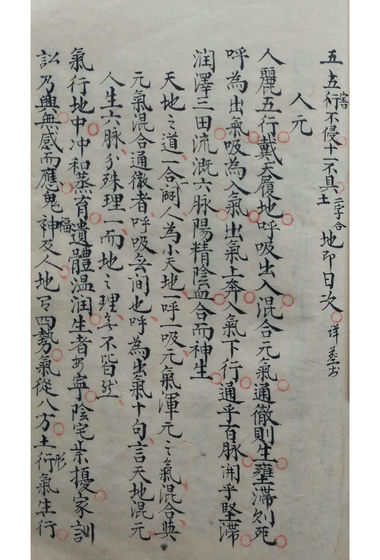 五占行不侵十一不具土地即日次
人元
人麗五行戴天履地呼吸出入混合元氣通徹則生壅滯則死
呼為出氣吸為入氣出氣上奔入氣下行通乎百脉開乎堅滯
润澤三田流溉六脉陽精陰血合而神生
天地之道一合一闢人為小天地一呼一吸元氣渾元之氣混合與
元氣混合通徹者呼吸無间也呼為出氣十句言天地混元
人生六脉分殊理一而地之理
不皆然
氣行地中冲和蒸育遺體温润生者安寧陰宅祟擾家訓
訟乃興無感而應鬼福神及人地有四勢氣從八方土形行氣生行